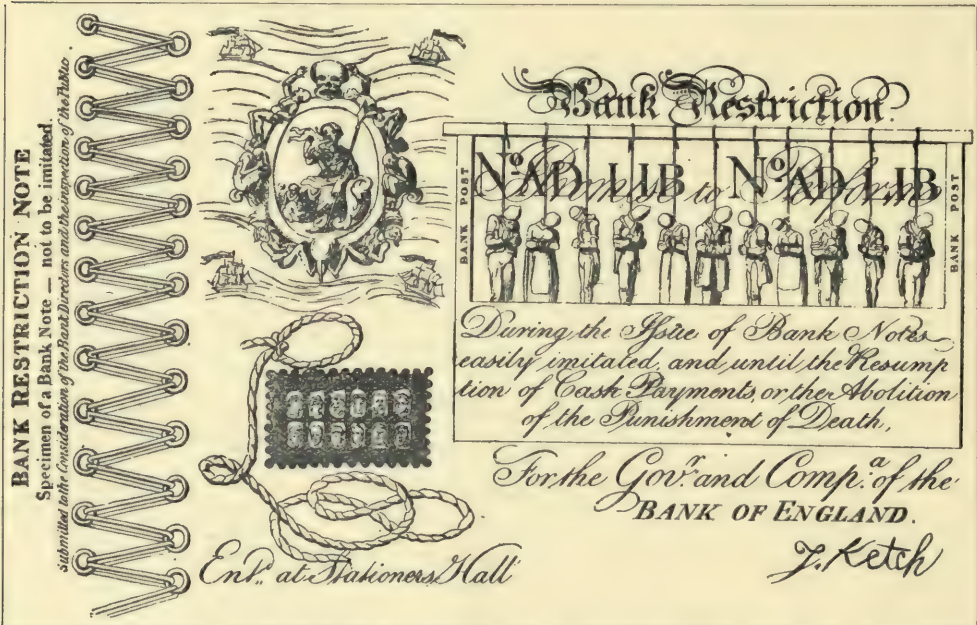 BANK RESTRICTION NOTE
Specimen of a Bank Note — not to be imitated.
Submitted to the Consideration of the Bank Directors and the inspection of the Public
Bank Restriction.
BANK POST
No. AD LIB No. AD LIB
Promise to Perform
BANK POST
During the Issue of Bank Notes
easily imitated, and until the Resump
tion of Cash Payments, or the Abolition
of the Punishment of Death,
For the Govr. and Compa. of the
BANK OF ENGLAND.
J. Ketch
Entd. at Stationers Hall